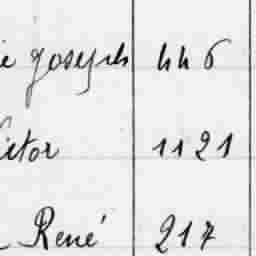 Joseph 446
ictor 1121
René 217